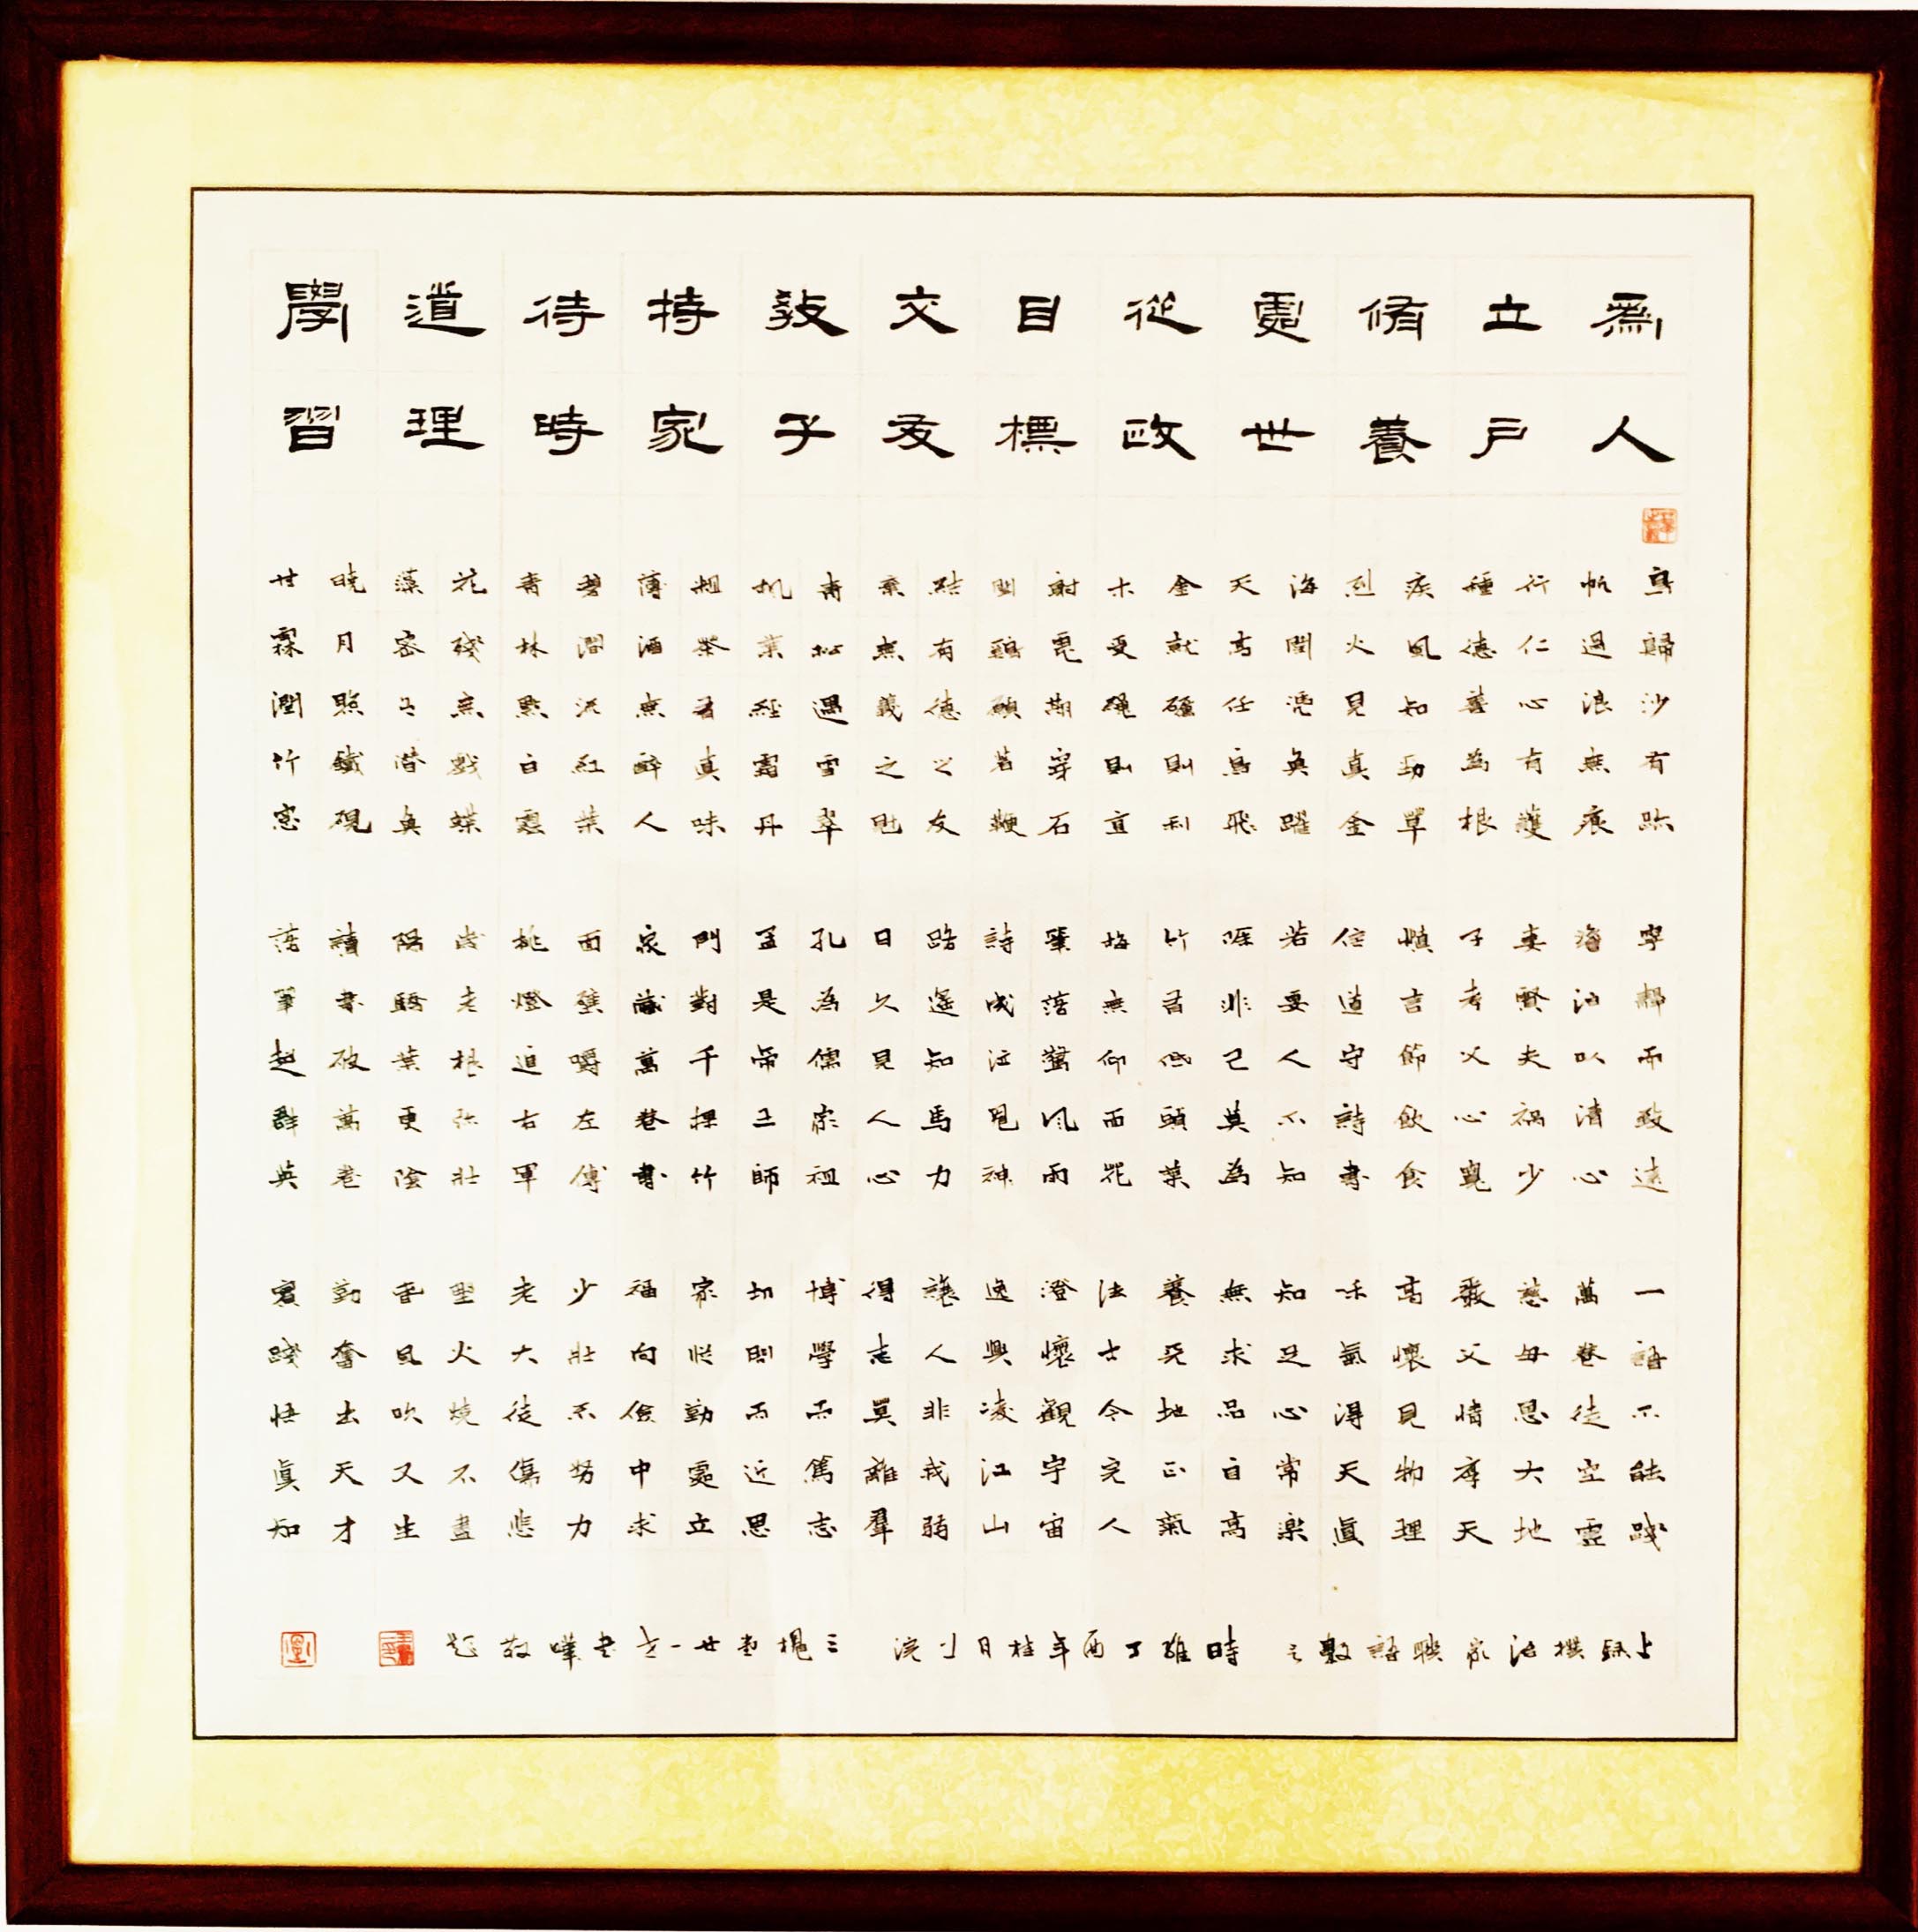 為人
立戶
脩養
處世
從政
目標
交友
教子
持家
待時
道理
學習
鳥歸沙有跡
帆過浪無痕
行仁心有護
種德善為根
疾風知勁草
烈火見真金
海闊憑魚躍
天高任鳥飛
金就礪則利
木受繩則直
射虎期穿石
聞雞願著鞭
結有德之友
棄無義之
青松遇雪翠
楓葉經霜丹
粗茶有真味
薄酒無醉人
碧澗流紅葉
青林點白雲
花殘無戲蝶
藻密有潛魚
曉月照鐵硯
甘霖潤竹窓
寧靜而致遠
澹泊以清心
妻賢夫禍少
子孝父心寬
慎言節飲食
信道守詩書
若要人不知
除非己莫為
竹有低頭葉
梅無仰面花
筆落驚風雨
詩成泣鬼神
路遙知馬力
日久見人心
孔為儒宗祖
孟是帝王師
門對千棵竹
家藏萬卷書
面壁嚼左傳
挑燈追右軍
歲老根弥壯
陽驕葉更陰
讀書破萬卷
落筆超群英
一語不能踐
萬卷徒空虛
慈母恩大地
嚴父情齊天
高懷見物理
和氣得天真
知足心常樂
無求品自高
養天地正氣
法古今完人
澄懷觀宇宙
逸興凌江山
讓人非我弱
得志莫離羣
博學而篤志
切問而近思
家從勤處立
福向儉中求
少壯不努力
老大徒傷悲
野火燒不盡
春風吹又生
勤奮出天才
實踐悟真知
上錄撰治家聯語數之 時維丁酉年桂月 三槐堂廿一 敬題